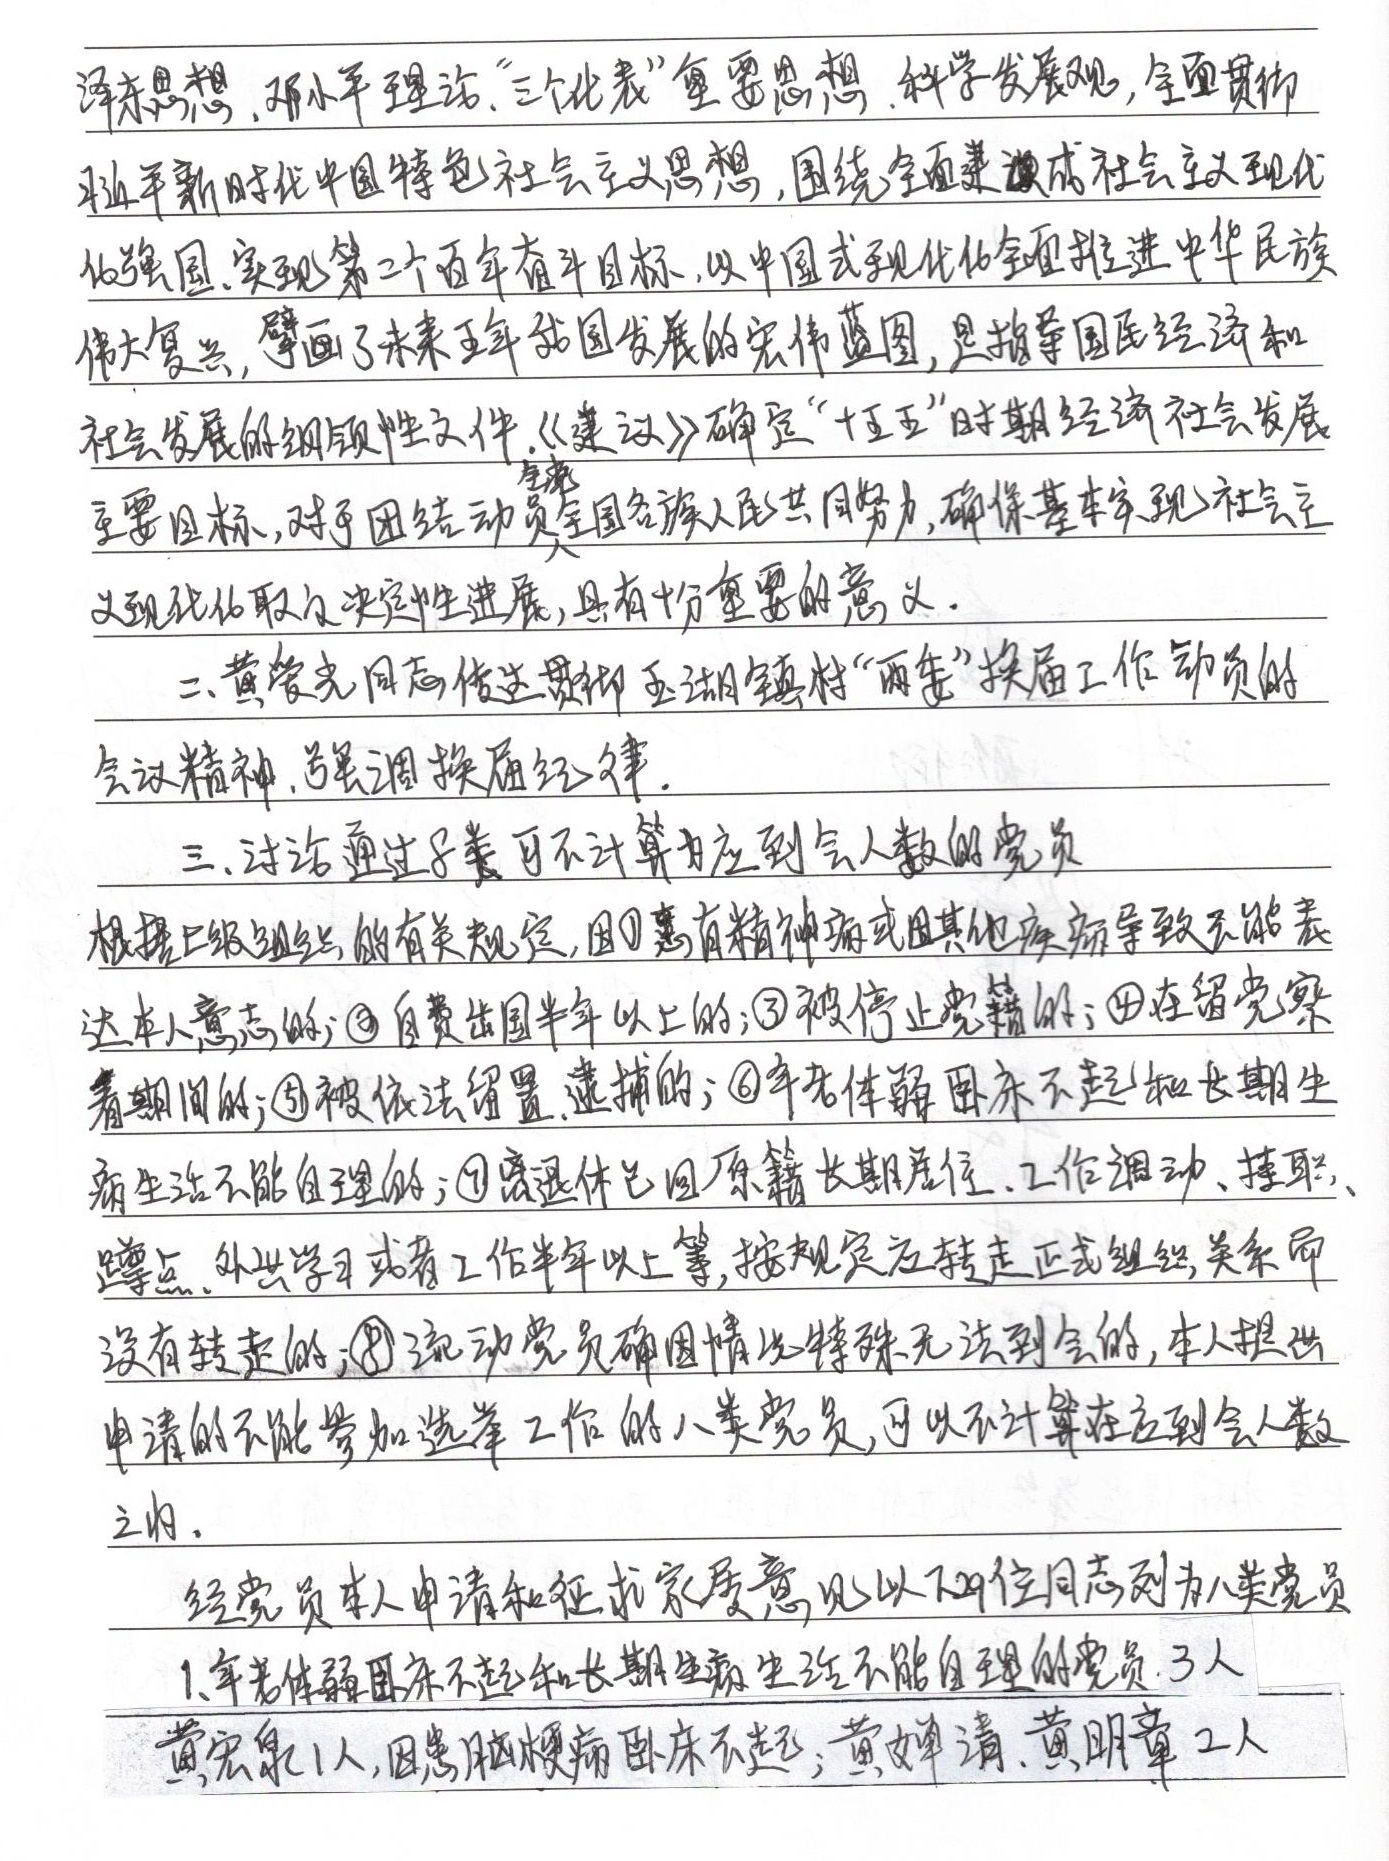 泽东思想、邓小平理论、“三个代表”重要思想、科学发展观，全面贯彻
习近平新时代中国特色社会主义思想，围绕全面建成社会主义现代
化强国、实现第二个百年奋斗目标，以中国式现代化全面推进中华民族
伟大复兴，擘画了未来五年我国发展的宏伟蓝图，是指导国民经济和
社会发展的纲领性文件。《建议》确定“十五五”时期经济社会发展
主要目标，对于团结动员全党全国各族人民共同努力，确保基本实现社会主
义现代化取得决定性进展，具有十分重要的意义。
二、黄荣光同志传达贯彻玉湖镇村“两委”换届工作动员的
会议精神，强调换届纪律。
三、讨论通过8类可不计算为应到会人数的党员
根据上级组织的有关规定，因①患有精神病或因其他疾病导致不能表
达本人意志的；②自费出国半年以上的；③被停止党籍的；④在留党察
看期间的；⑤被依法留置、逮捕的；⑥年老体弱卧床不起和长期生
病生活不能自理的；⑦离退休已回原籍长期居住、工作调动、挂职、
蹲点、外出学习或者工作半年以上等，按规定应转走正式组织关系而
没有转走的；⑧流动党员确因情况特殊无法到会的，本人提出
申请的不能参加选举工作的八类党员，可以不计算在应到会人数
之内。
经党员本人申请和征求家属意见以下29位同志列为八类党员
1、年老体弱卧床不起和长期生病生活不能自理的党员3人
黄宏泉1人，因患脑梗病卧床不起；黄婵清、黄明章2人